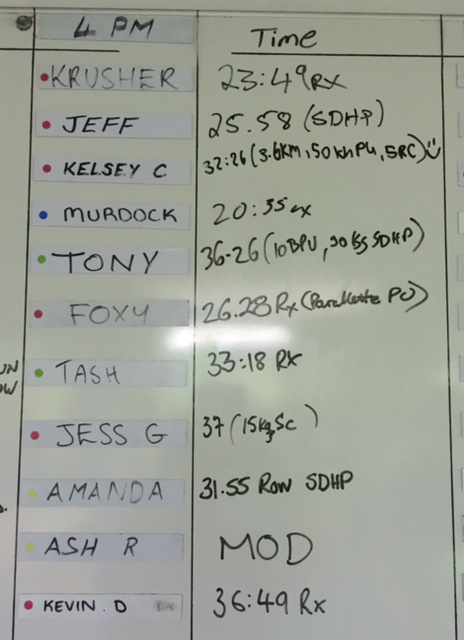 4 PM Time
KRUSHER 23:49 Rx
JEFF 25.58 (SDHP)
KELSEY C 32:26 (3.6KM, 50 kn PU, SRC)
MURDOCK 20:35 Rx
TONY 36-26 (10 BPU, 30 kg SDHP)
FOXY 26.28 Rx (Parallette PU)
TASH 33:18 Rx
JESS G 37 (15kg Sc)
AMANDA 31.55 Row SDHP
ASH R MOD
KEVIN. D 36:49 Rx